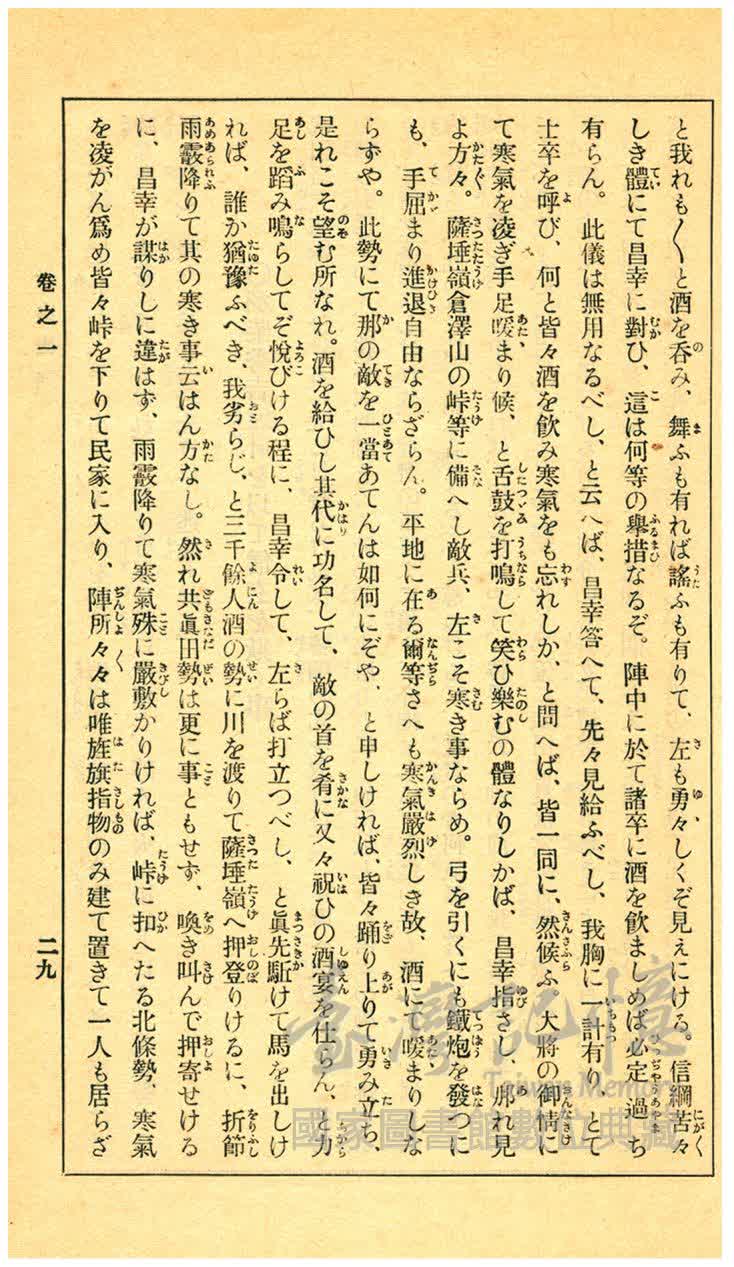 と我れも〳〵と酒を呑み、舞ふも有れば謠ふも有りて、左も勇々しくぞ見えにける。信綱苦々
しき體にて昌幸に對ひ、這は何等の擧措なるぞ。陣中に於て諸卒に酒を飮ましめば必定過ち
有らん。此儀は無用なるべし、と云へば、昌幸答へて、先々見給ふべし、我胸に一計有り、とて
士卒を呼び、何と皆々酒を飮み寒氣をも忘れしか、と問へば、皆一同に、然候ふ大將の御情に
て寒氣を凌ぎ手足暖まり候、と舌鼓を打鳴して笑ひ樂むの體なりしかば、昌幸指さし、那れ見
よ方々。薩埵嶺倉澤山の峠等に備へし敵兵、左こそ寒き事ならめ。弓を引くにも鐵炮を發つに
も、手屈まり進退自由ならざらん。平地に在る爾等さへも寒氣嚴烈しき故、酒にて暖まりしな
らずや。此勢にて那の敵を一當あてんは如何にぞや、と申しければ、皆々踊り上りて勇み立ち、
是れこそ望む所なれ。酒を給ひし其代に功名して、敵の首を肴に又々祝ひの酒宴を仕らん、と力
足を蹈み鳴らしてぞ悅びける程に、昌幸令して、左らば打立つべし、と眞先駈けて馬を出しけ
れば、誰か猶豫ふべき、我劣らじ、と三千餘人酒の勢に川を渡りて薩埵嶺へ押登りけるに、折節
雨霰降りて其の寒き事云はん方なし。然れ共眞田勢は更に事ともせず、喚き叫んで押寄せける
に、昌幸が謀りしに違はず、雨霰降りて寒氣殊に嚴敷かりければ、峠に扣へたる北條勢、寒氣
を凌がん爲め皆々峠を下りて民家に入り、陣所々々は唯旌旗指物のみ建て置きて一人も居らざ
卷之一
二九
臺灣記憶
Taiwan Memory
國家圖書館數位典藏